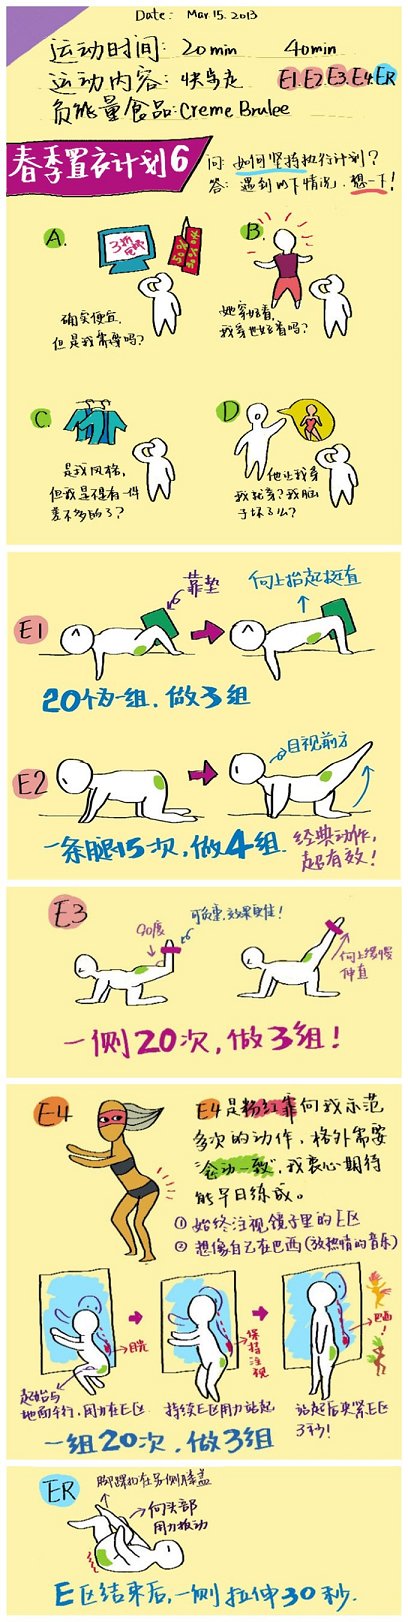 Date: Mar 15. 2013
运动时间: 20min 40min
运动内容: 快走 E1.E2.E3.E4.ER
负能量食品: Creme Brulee
春季置衣计划6
问: 如何坚持执行计划?
答: 遇到以下情况, 想一下!
A.
3折
确实便宜,
但是我需要吗?
B.
她穿好看,
我穿也好看吗?
C
是我风格,
但我是不是有一件
差不多的了?
D
他让我穿
我就穿? 我脑
子坏了么?
E1
靠垫
向上抬起挺直
20个为一组, 做3组
E2
目视前方
一条腿15次, 做4组.
经典动作,
超有效!
E3
90度
可负重, 效果更佳!
向上缓慢
伸直
一侧20次, 做3组!
E4
E4是粉红靠向我示范
多次的动作, 格外需要
"念动一致", 我衷心期待
能早日练成。
① 始终注视镜子里的E区
② 想像自己在巴西(放热情的音乐)
目光
保持注视
巴西!
起始与
地面平行, 用力在E区
持续E区用力站起
站起后夹紧E区
3秒!
一组20次, 做3组
ER
脚踝扣在另侧膝盖
向头部
用力扳动
E区结束后, 一侧拉伸30秒.